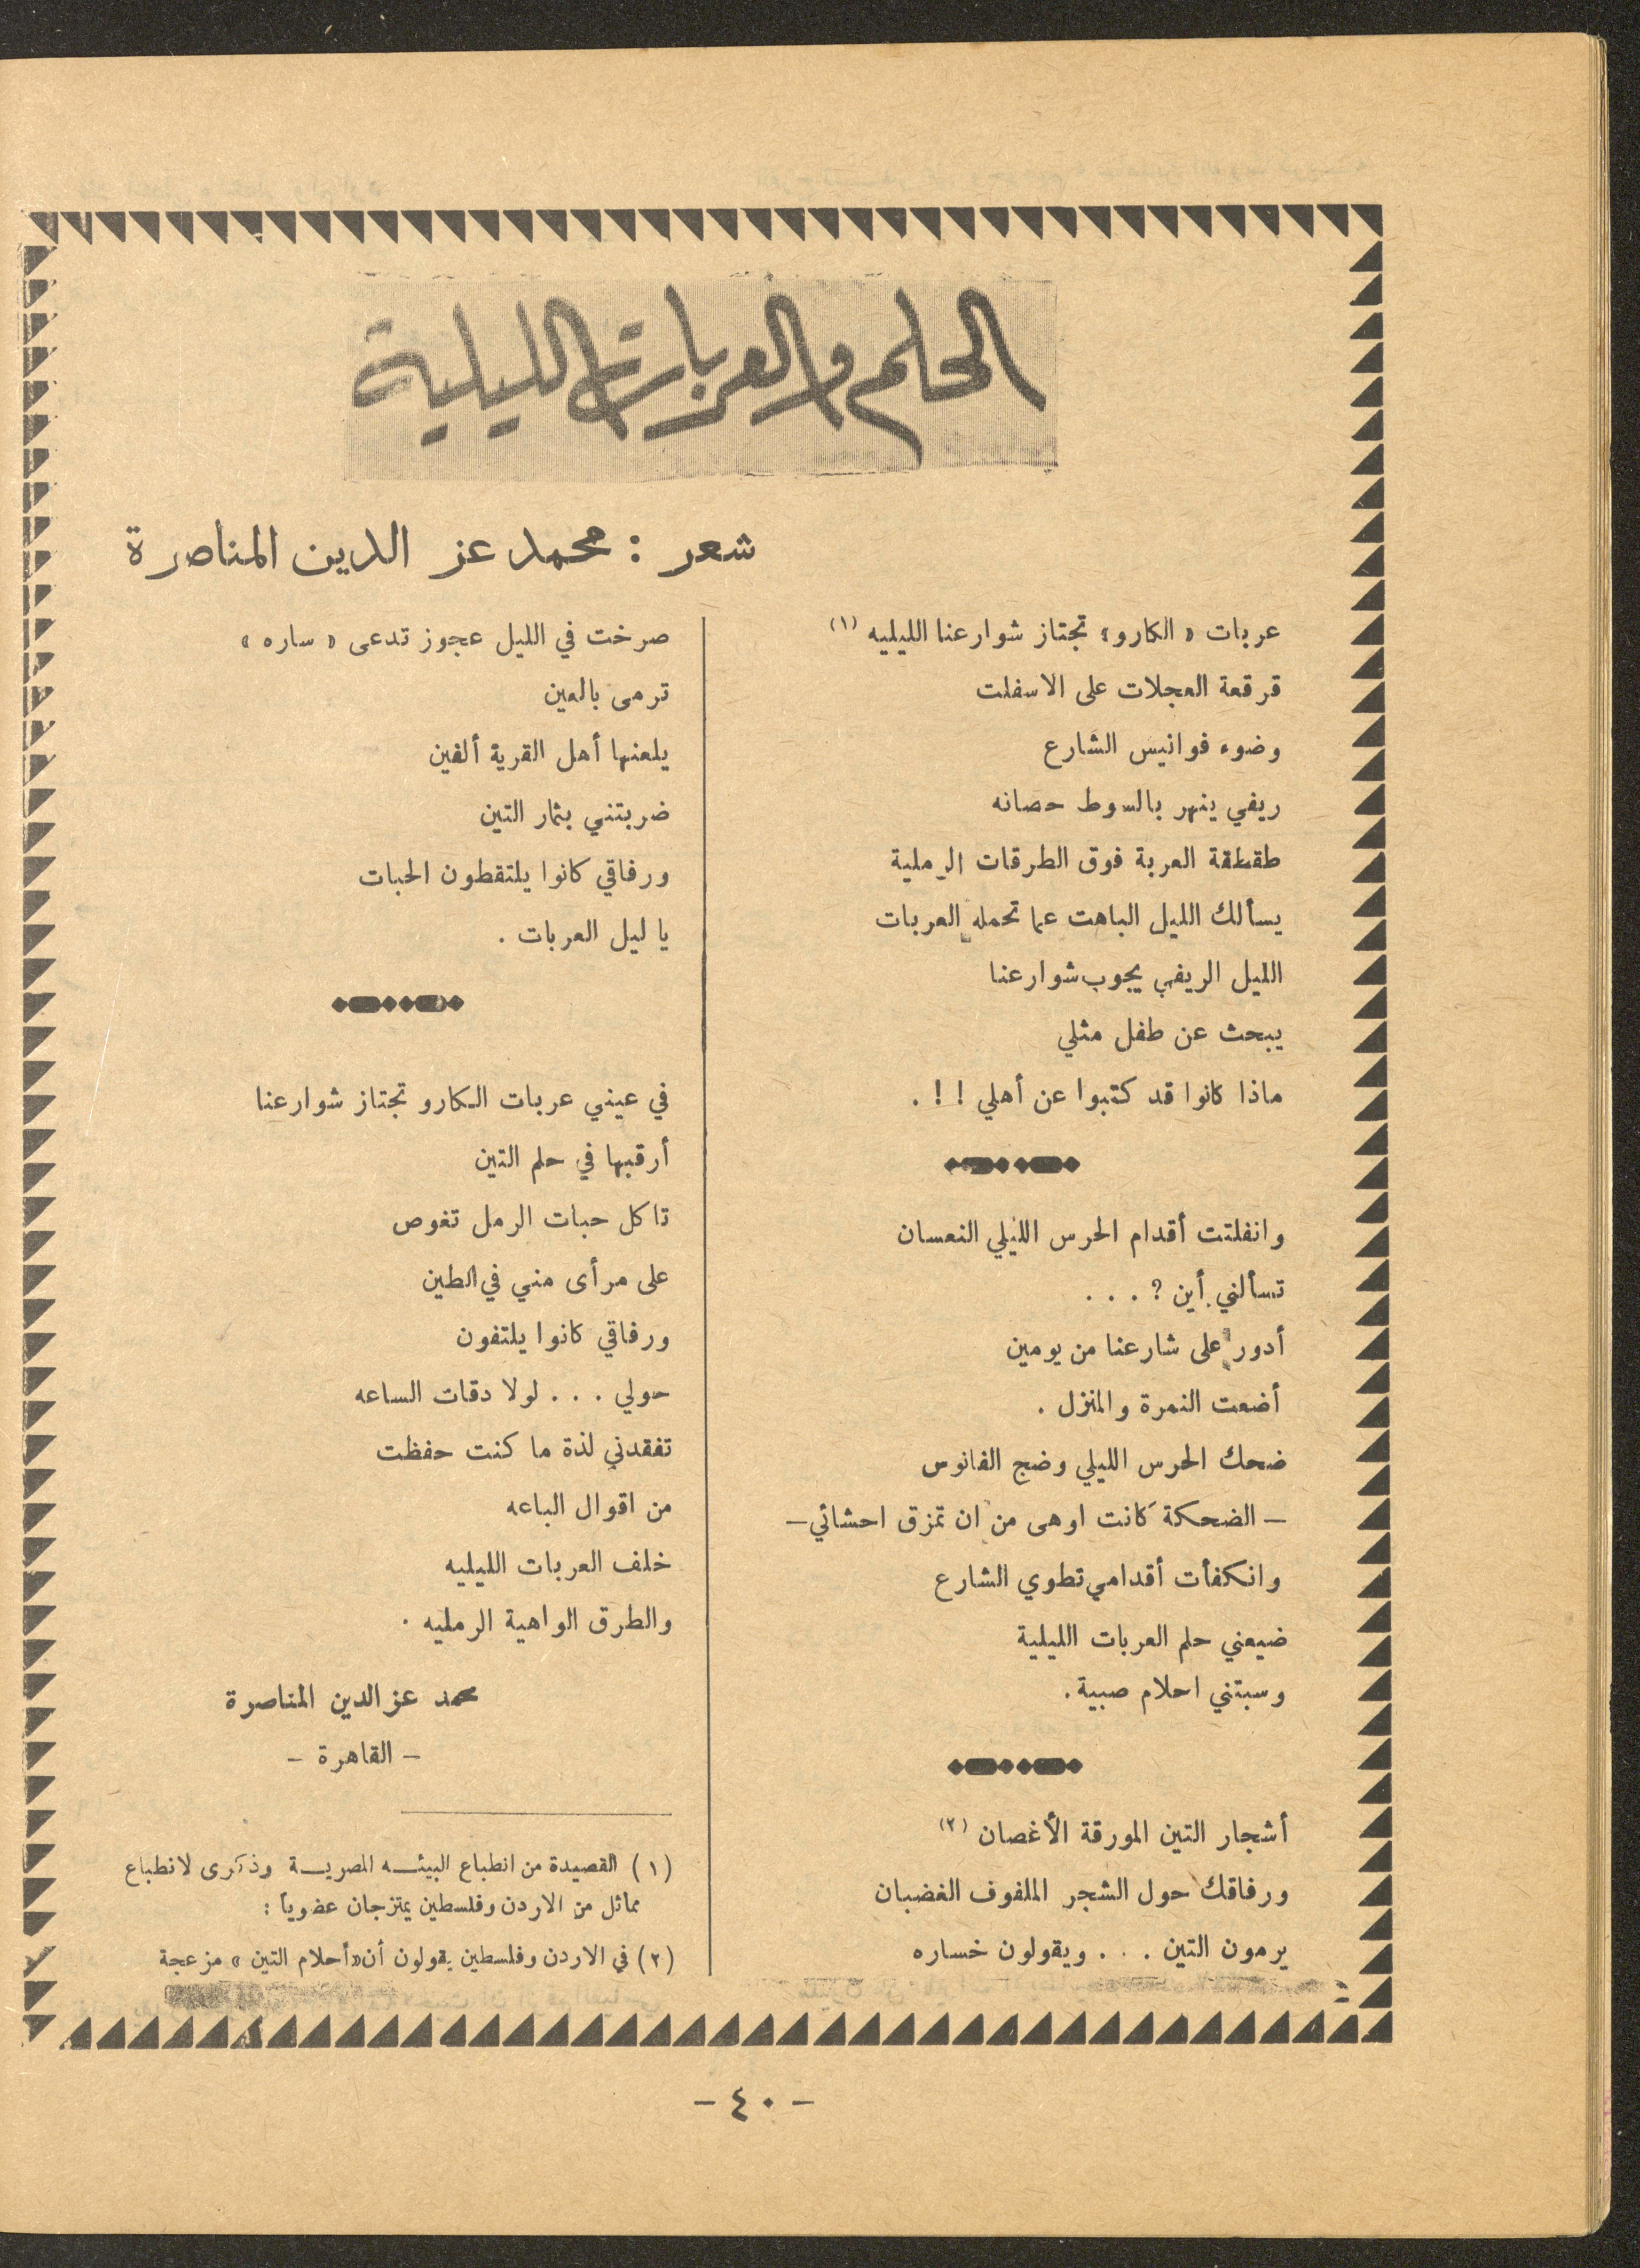 الحلم والعربات الليلية
شعر : محمد عز الدين المناصرة
عربات « الكارو» تجتاز شوارعنا الليليه (١)
قرقعة العجلات على الاسفلت
وضوء فوانيس الشارع
ريفي ينهر بالسوط حصانه
طقطقة العربة فوق الطرقات الرملية
يسألك الليل الباهت عما تحمله العربات
الليل الريفي يجوب شوارعنا
يبحث عن طفل مثلي
ماذا كانوا قد كتبوا عن أهلي ! ! .
وانفلتت أقدام الحرس الليلي النعسان
تسألني أين ? . . .
أدور على شارعنا من يومين
أضعت النمرة والمنزل .
ضحك الحرس الليلي وضج الفانوس
– الضحكة كانت اوهى من ان تمزق احشائي –
وانكفأت أقدامي تطوي الشارع
ضيعني حلم العربات الليلية
وسبتني احلام صبية .
أشجار التين المورقة الأغصان (٢)
ورفاقك حول الشجر الملفوف الغضبان
يرمون التين . . . ويقولون خساره
صرخت في الليل عجوز تدعى « ساره »
ترمى بالعين
يلعنها أهل القرية ألفين
ضربتني بثمار التين
ورفاقي كانوا يلتقطون الحبات
يا ليل العربات .
في عيني عربات الكارو تجتاز شوارعنا
أرقبها في حلم التين
تاكل حبات الرمل تغوص
على مرأى مني في الطين
ورفاقي كانوا يلتفون
حولي . . . لولا دقات الساعه
تفقدني لذة ما كنت حفظت
من اقوال الباعه
خلف العربات الليليه
والطرق الواهية الرمليه .
محمد عز الدين المناصرة
– القاهرة –
(١) القصيدة من انطباع البيئه المصرية وذكرى لانطباع
مماثل من الاردن وفلسطين يمتزجان عضوياً :
(٢) في الاردن وفلسطين يقولون أن «أحلام التين » مزعجة
– ٤٠ –